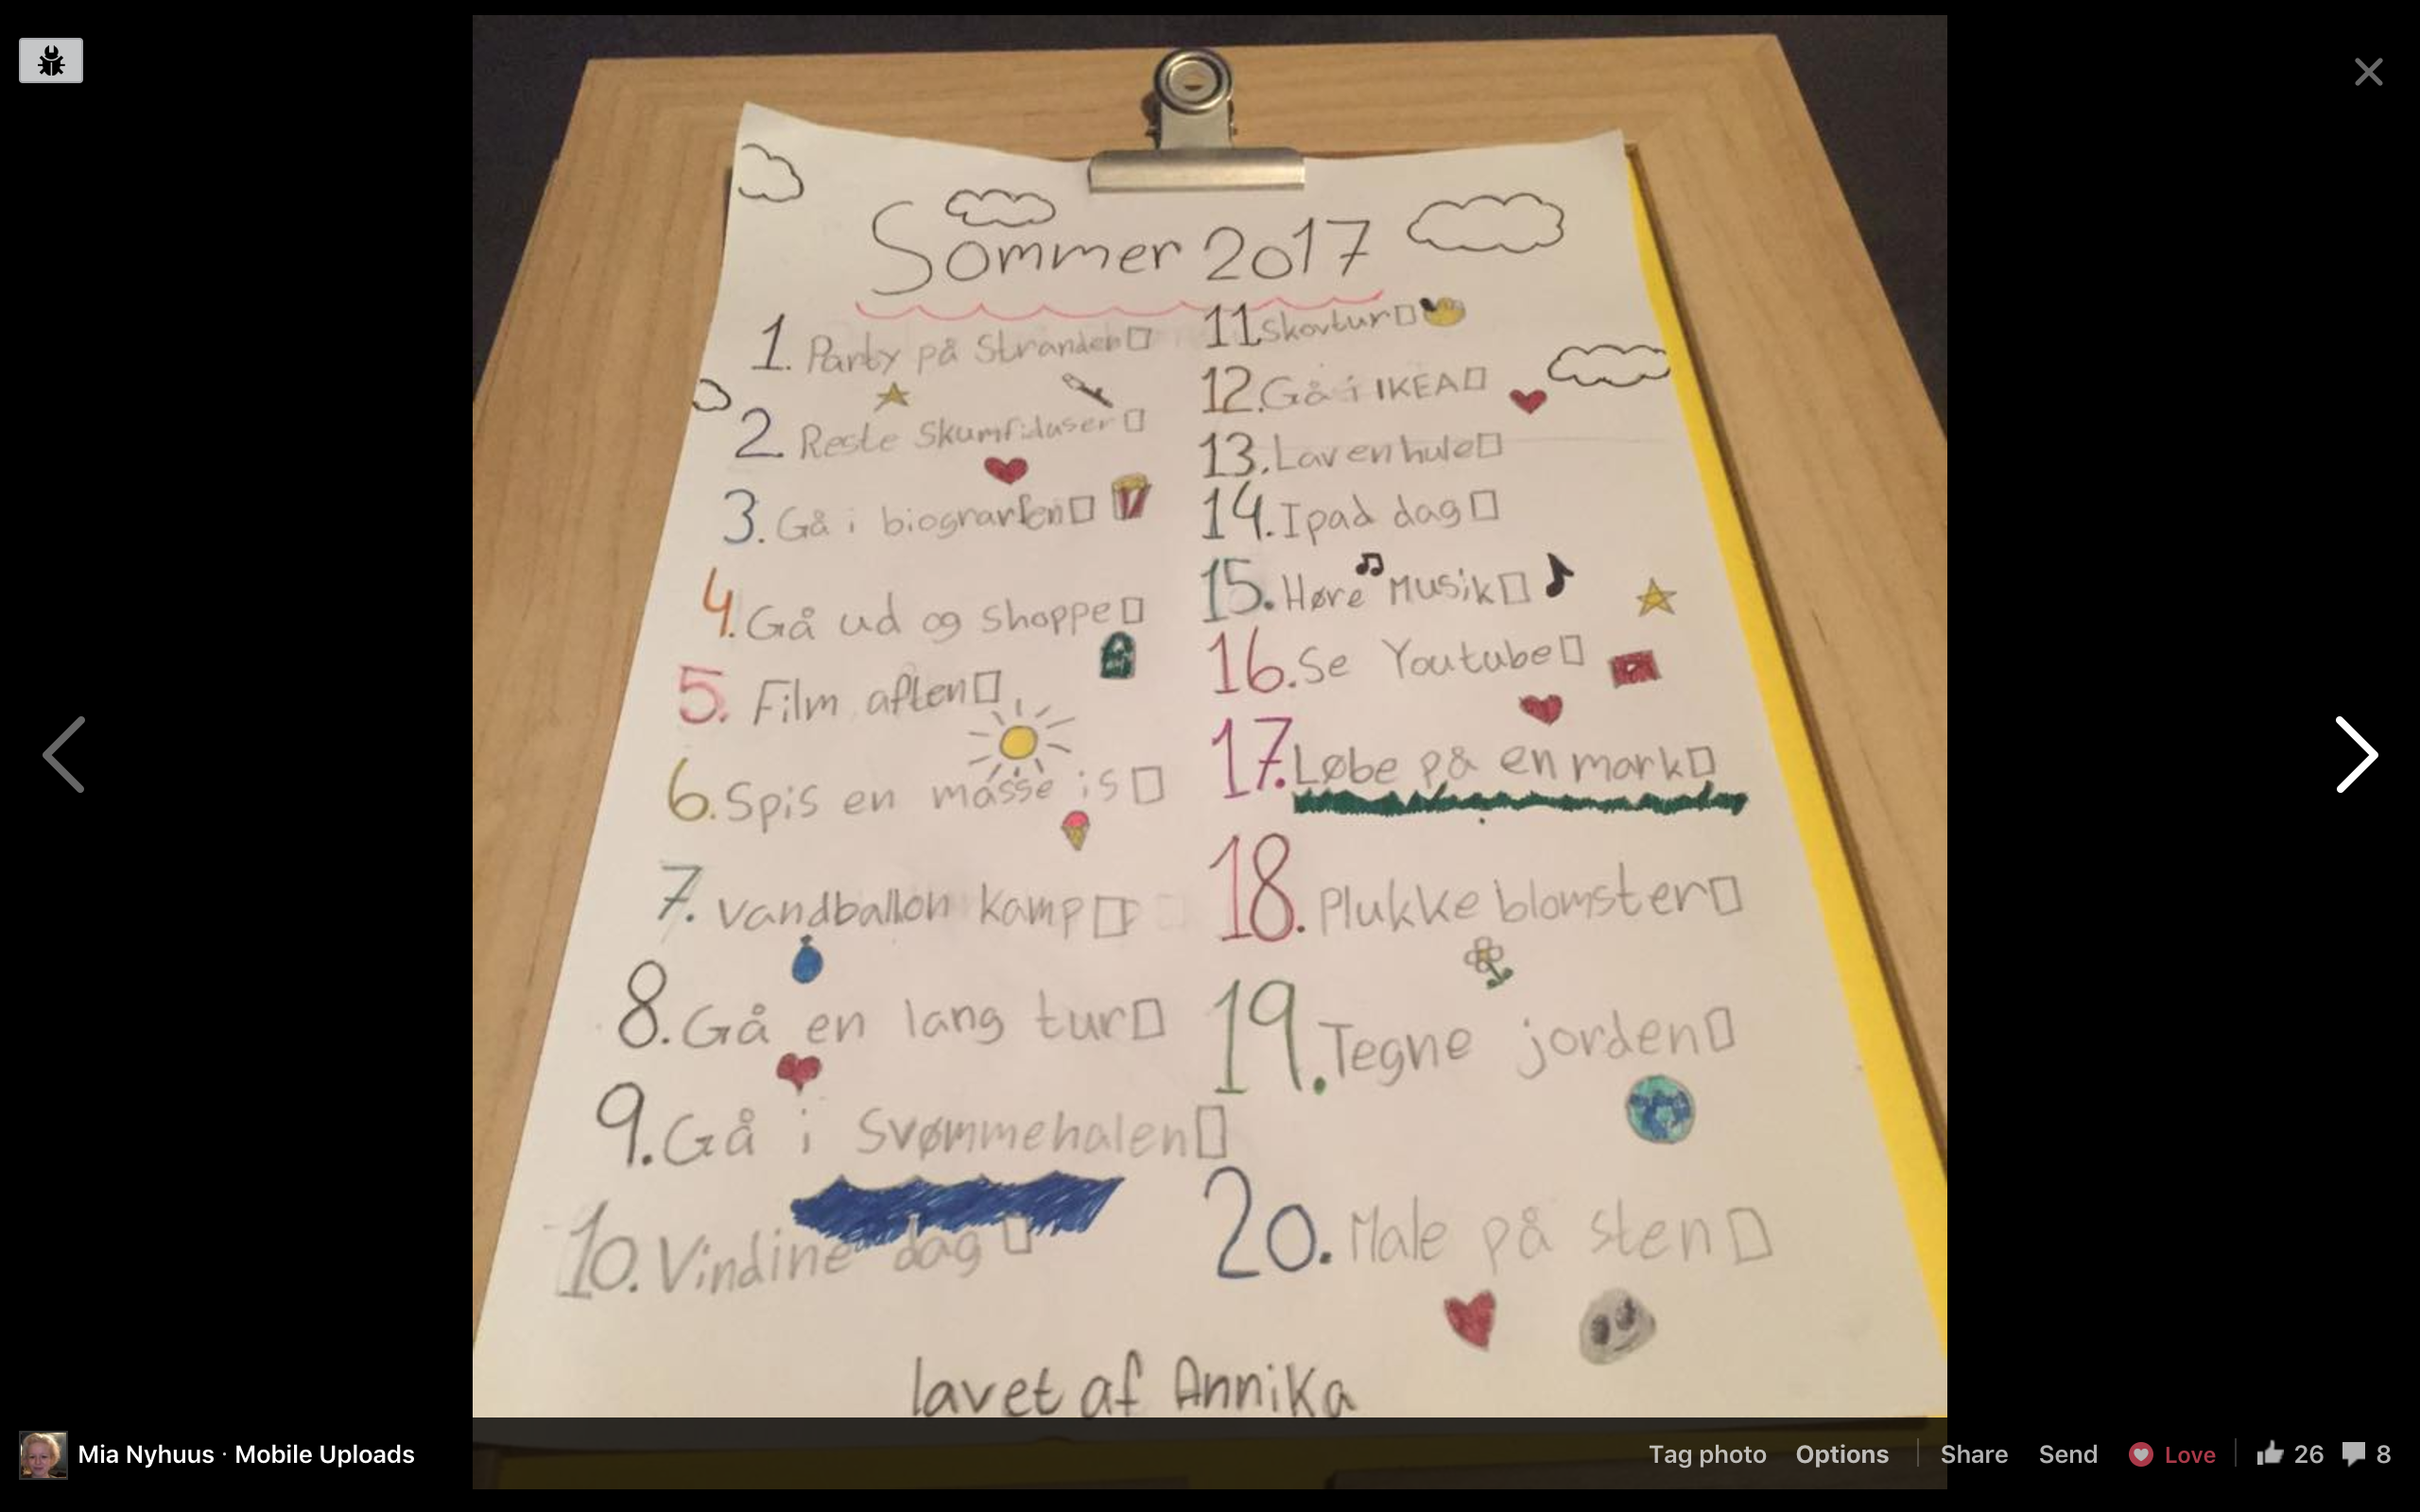 Sommer 2017
1. Party på Stranden
2. Reste Skumfiduser
3. Gå i biografren
4. Gå ud og shoppe
5. Film aften
6. Spis en masse is
7. Vandballon kamp
8. Gå en lang tur
9. Gå i Svømmehalen
10. Vindine dag
11 Skovtur
12. Gå i IKEA
13. Lav en hule
14. Ipad dag
15. Høre Musik
16. Se Youtube
17. Løbe på en mark
18. Plukke blomster
19. Tegne jorden
20. Male på sten
lavet af Annika
Mia Nyhuus · Mobile Uploads
Tag photo Options Share Send Love 26 8